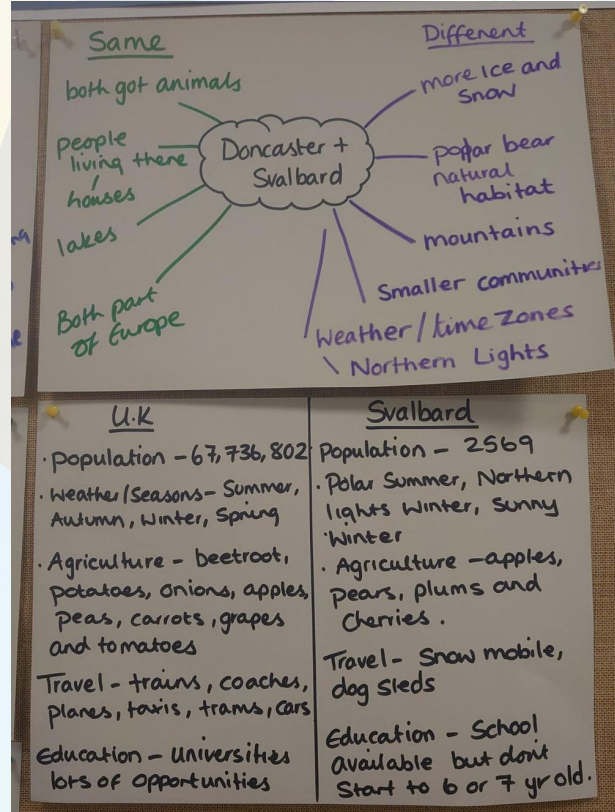 Same
both got animals
people
living there
/
houses
lakes
Both part
of Europe
Doncaster +
Svalbard
Different
more ice and
snow
polar bear
natural
habitat
mountains
Smaller communities
Weather / time zones
Northern Lights
U.K
· Population - 67,736,802
· Weather/Seasons - Summer,
Autumn, Winter, Spring
· Agriculture - beetroot,
potatoes, onions, apples,
peas, carrots, grapes
and tomatoes
Travel - trains, coaches,
planes, taxis, trams, cars
Education - Universities
lots of opportunities
Svalbard
Population - 2569
· Polar Summer, Northern
lights Winter, Sunny
Winter
· Agriculture - apples,
pears, plums and
cherries.
Travel - Snow mobile,
dog sleds
Education - School
available but don't
Start to 6 or 7 yr old.